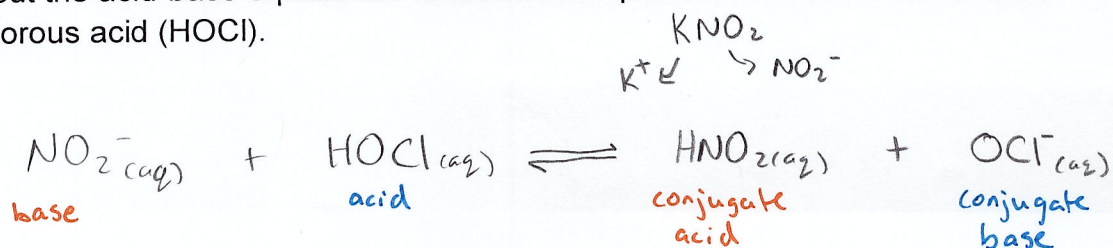 orous acid (HOCl).
KNO₂
K⁺ ↙ ↘ NO₂⁻
NO₂⁻(aq) + HOCl(aq) ⇌ HNO₂(aq) + OCl⁻(aq)
base acid conjugate acid conjugate base